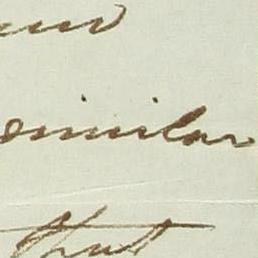 similar
that